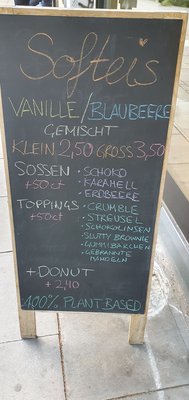 Softeis
VANILLE/BLAUBEERE
GEMISCHT
KLEIN 2,50 GROSS 3,50
SOSSEN • SCHOKO
+50ct • KARAMELL
• ERDBEERE
TOPPINGS • CRUMBLE
+50ct • STREUSEL
• SCHOKOLINSEN
• SLUTTY BROWNIE
• GUMMIBÄRCHEN
• GEBRANNTE
MANDELN
+ DONUT
+ 2,40
100% PLANT BASED